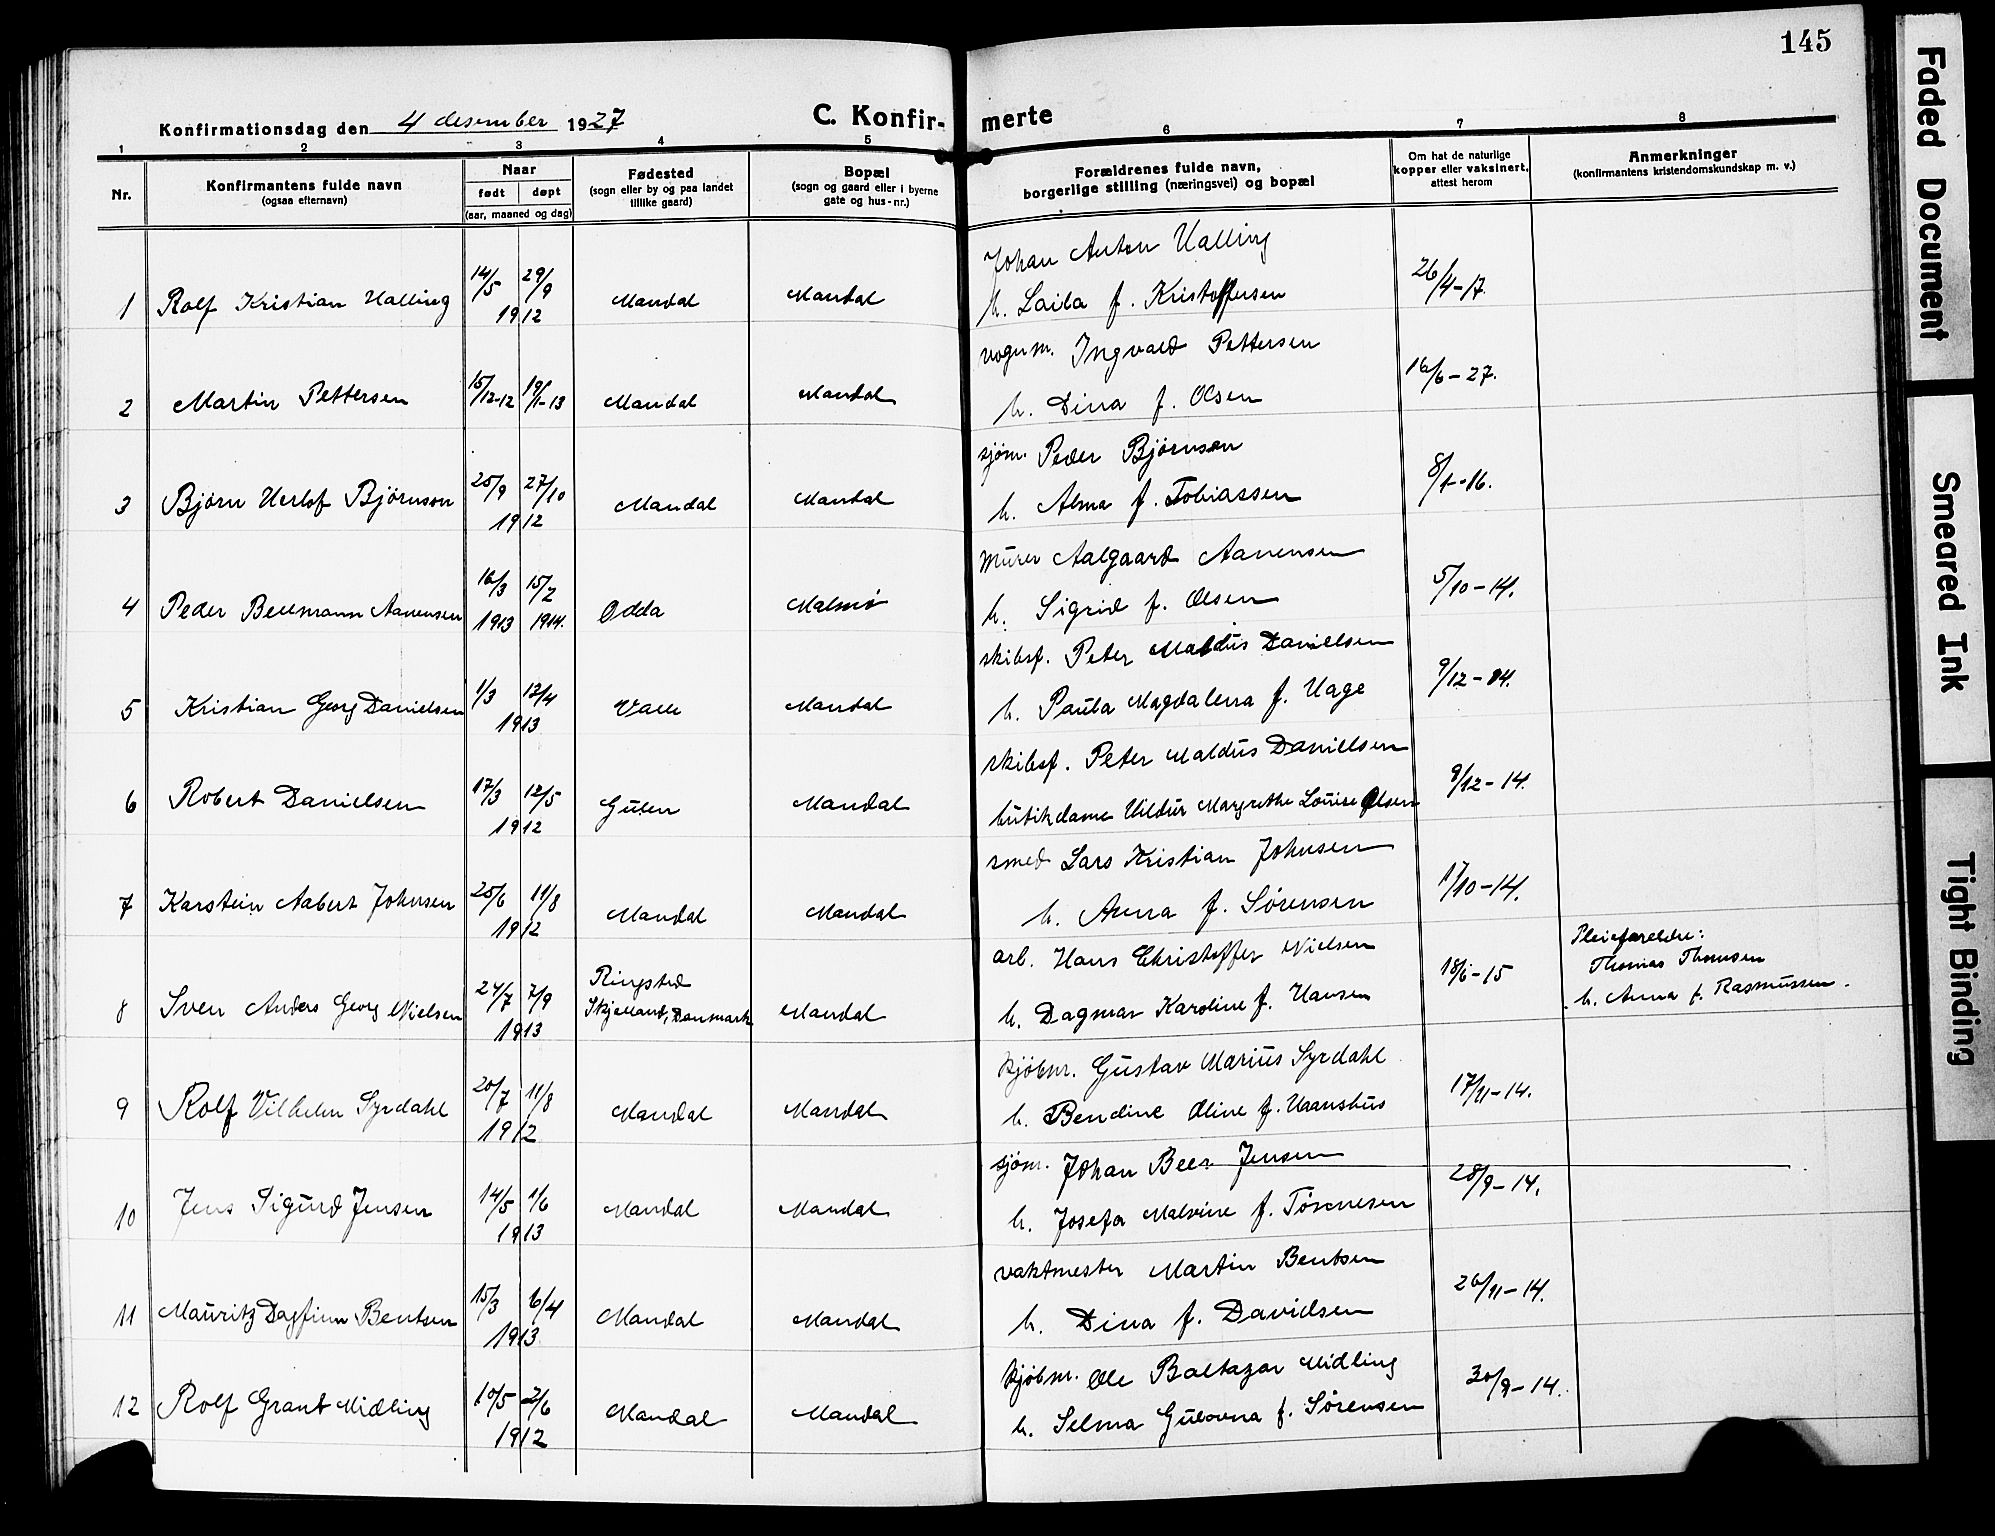 145
Konfirmationsdag den 4 desember 1927
C. Konfir-merte
1 2 3 4 5 6 7 8
Nr.
Konfirmantens fulde navn
(ogsaa efternavn)
Naar
født døpt
(aar, maaned og dag)
Fødested
(sogn eller by og paa landet
tillike gaard)
Bopæl
(sogn og gaard eller i byerne
gate og hus-nr.)
Forældrenes fulde navn,
borgerlige stilling (næringsvei) og bopæl
Om hat de naturlige
kopper eller vaksinert,
attest herom
Anmerkninger
(konfirmantens kristendomskundskap m. v.)
Johan Anton Halling
1 Rolf Kristian Halling 14/5 29/9 1912 Mandal Mandal h. Laila f. Kristoffersen 26/4-17.
vognm. Ingvald Pettersen
2 Martin Pettersen 15/12-12 19/1-13 Mandal Mandal h. Dina f. Olsen 16/6-27.
sjøm. Peder Bjørnson
3 Bjørn Herlof Bjørnson 25/9 27/10 1912 Mandal Mandal h. Alma f. Tobiassen 8/1-16.
murer Aalgaard Aanensen
4 Peder Bellmann Aanensen 16/3 1913 15/2 1914. Odda Malmø h. Sigrid f. Olsen 5/10-14.
skibsf. Peter Maldus Danielsen
5 Kristian Georg Danielsen 1/3 12/4 1913 Valle Mandal h. Paula Magdalena f. Hage 9/12-14.
skibsf. Peter Maldus Danielsen
6 Robert Danielsen 17/3 12/5 1912 Gulen Mandal butikdame Hildur Margrethe Louise Olsen 9/12-14.
smed Lars Kristian Johnsen
7 Karstein Aabert Johnsen 25/6 11/8 1912 Mandal Mandal h. Anna f. Sørensen 17/10-14.
arb. Hans Christoffer Nielsen
8 Sven Anders Georg Nielsen 24/7 7/9 1913 Ringsted
Skjelland, Danmark Mandal h. Dagmar Karoline f. Hansen 18/6-15
Pleieforeldre:
Thomas Thomsen
h. Anna f. Rasmussen.
kjøbm. Gustav Marius Syrdahl
9 Rolf Vilhelm Syrdahl 20/7 11/8 1912 Mandal Mandal h. Bendine Oline f. Haanshus 17/11-14.
sjøm. Johan Beer Jensen
10 Jens Sigurd Jensen 14/5 1/6 1913 Mandal Mandal h. Josefa Malvine f. Tønnesen 28/9-14.
vaktmester Martin Bentsen
11 Mauritz Dagfinn Bentsen 15/3 6/4 1913 Mandal Mandal h. Dina f. Davidsen 26/11-14.
kjøbm. Ole Baltazar Midling
12 Rolf Grant Midling 10/5 2/6 1912 Mandal Mandal h. Selma Gulovna f. Sørensen 30/9-14.
Faded Document
Smeared Ink
Tight Binding